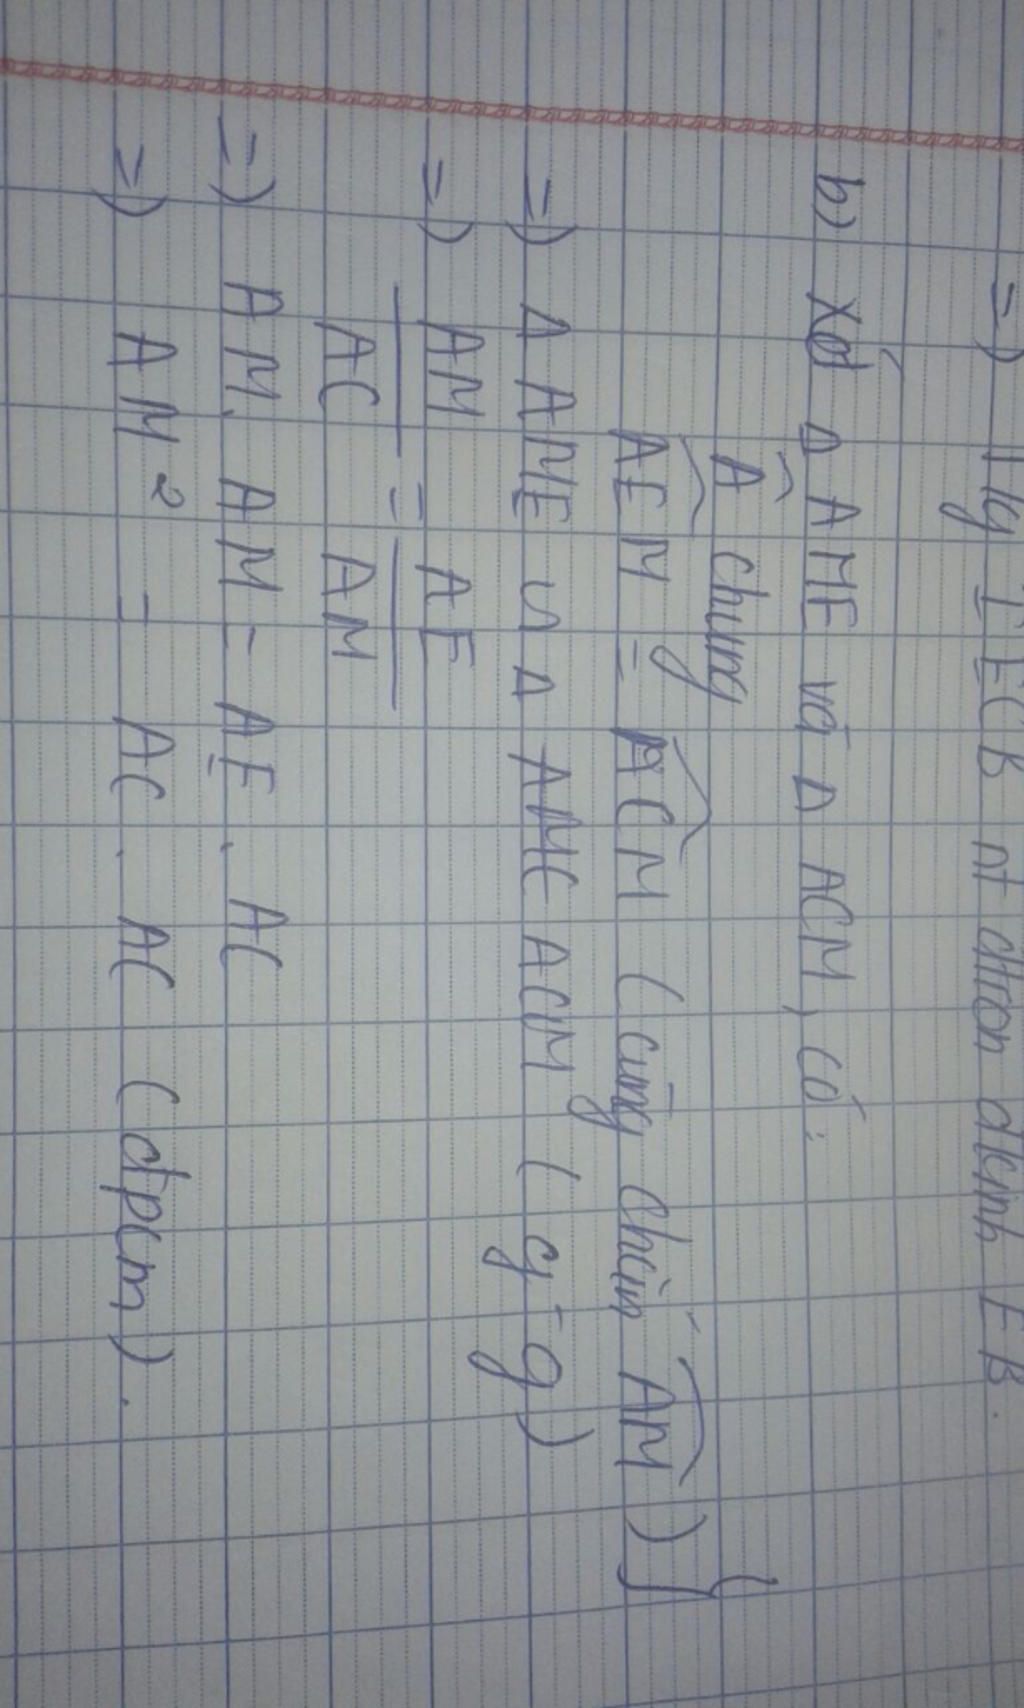 =) Tứ giác IECB nt đtròn đkính EB.
b) Xét Δ AME và Δ ACM, có:
Â chung
AEM = ACM (cùng chắn AM) }
=) Δ AME ∽ Δ AME ACM (g-g)
=) AM/AC = AE/AM
=) AM. AM = AE. AC
=) AM² = AC. AC (đpcm).